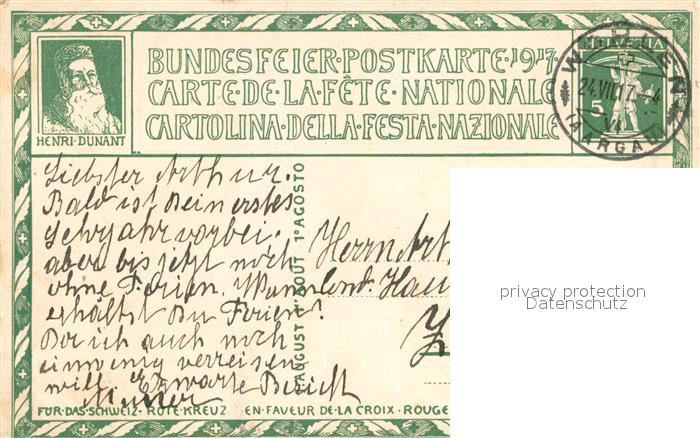 BUNDESFEIER·POSTKARTE·1917·
CARTE·DE·LA·FÊTE·NATIONALE
CARTOLINA·DELLA·FESTA·NAZIONALE
HENRI·DUNANT
HELVETIA
5
WOHLEN
24.VII.17
VI
(AARGAU)
Liebster Arthur.
Bald ist dein erstes
Lehrjahr vorbei.
aber bis jetzt noch
ohne Ferien. Wann
erhältst Du Ferien?
Da ich auch noch
ein wenig verreisen
will. Erwarte Bericht
1. AUGUST 1er AOUT 1° AGOSTO
Herrn Art
Hau
privacy protection
Datenschutz
FÜR·DAS·SCHWEIZ·ROTE·KREUZ·EN·FAVEUR·DE·LA·CROIX·ROUGE